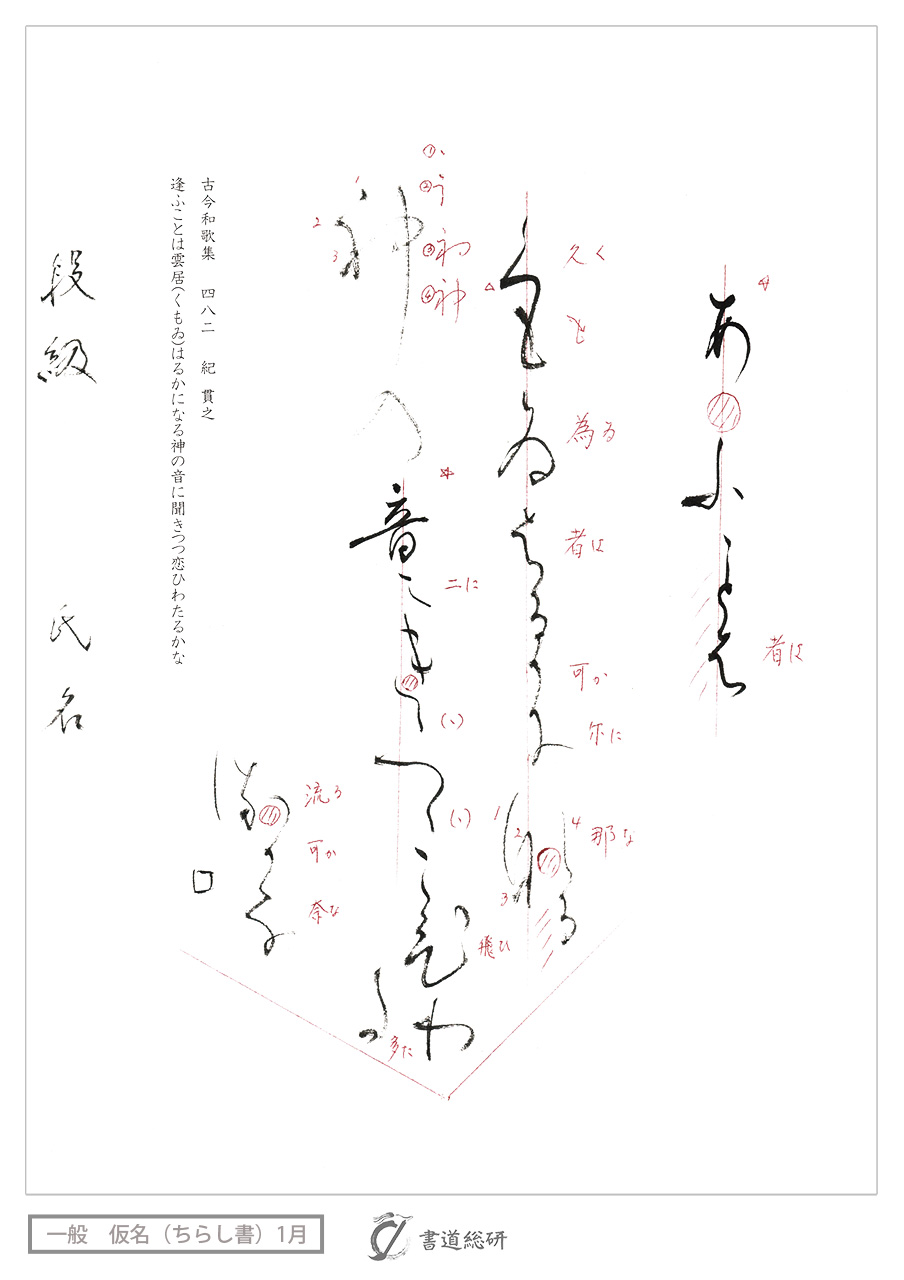 あふことは
くもゐはるかに
なる
神の音にきく
つつこひわ
た
るかな
者は
久く
も
為ゐ
者は
可か
尓に
那な
1
2
3
4
①
②
③ネ
④神
1
2
3
二に
(い)
(い)
飛ひ
多た
流る
可か
奈な
古今和歌集 四八二 紀貫之
逢ふことは雲居(くもゐ)はるかになる神の音に聞きつつ恋ひわたるかな
段級 氏名
一般 仮名(ちらし書)1月
書道総研